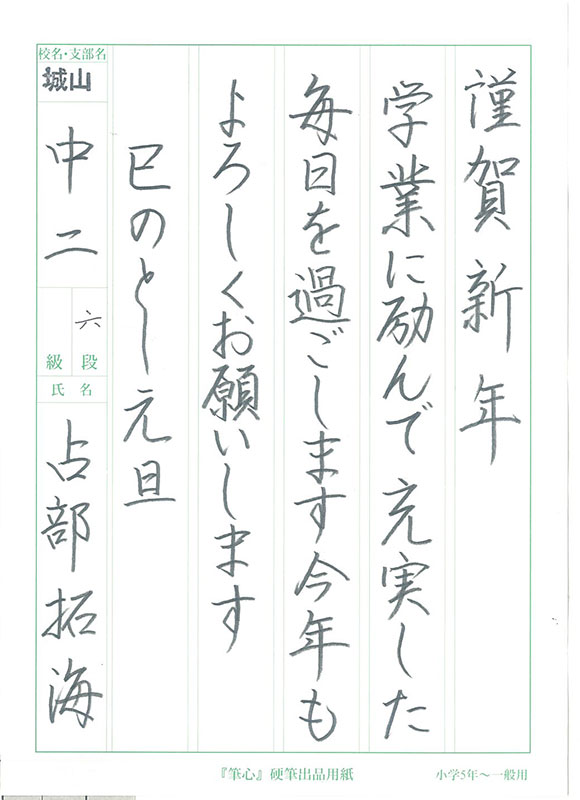 謹賀新年
学業に励んで充実した
毎日を過ごします今年も
よろしくお願いします
巳のとし元旦
校名・支部名
城山
中二
六
段
級
氏名
占部拓海
『筆心』硬筆出品用紙
小学5年〜一般用